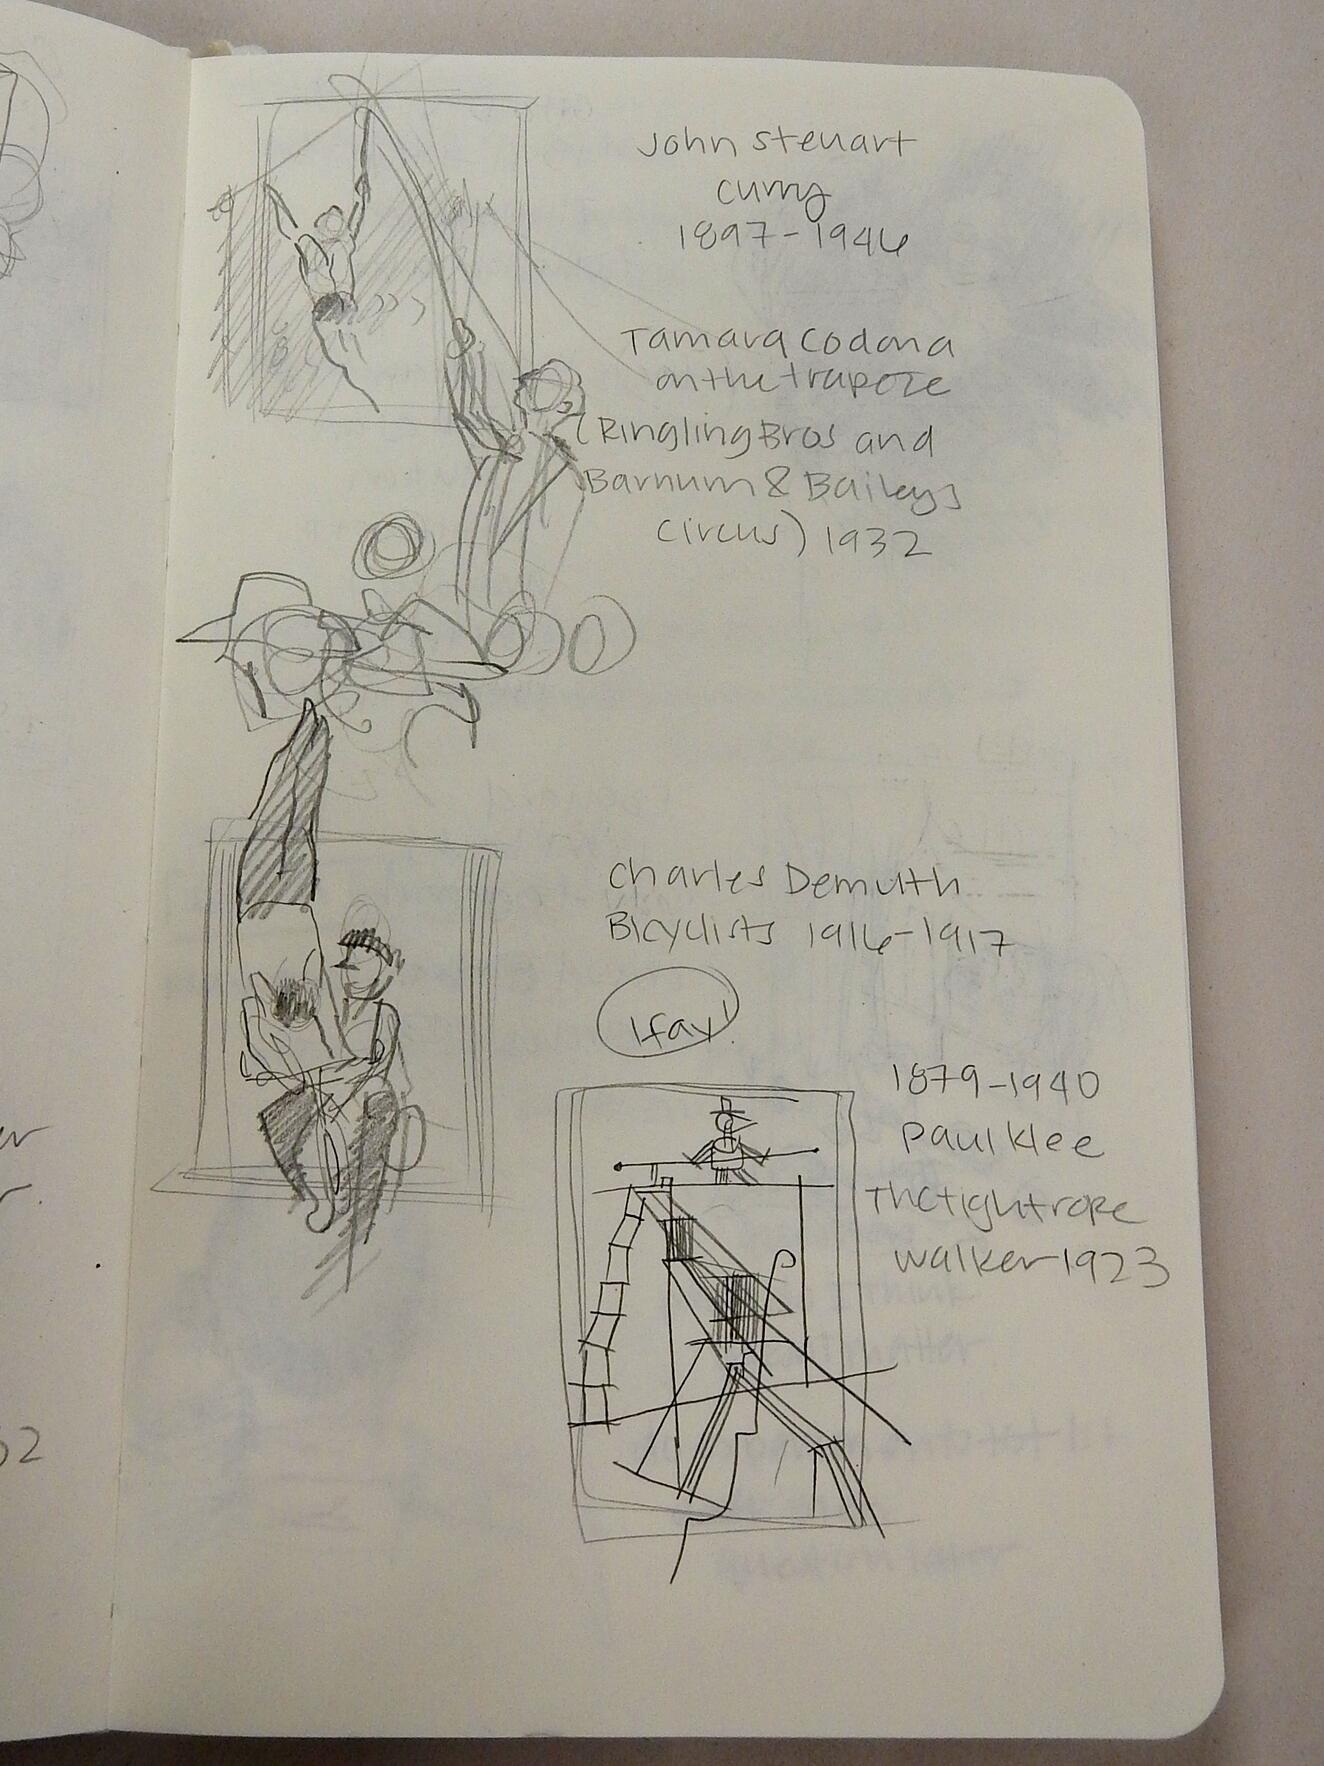 John Steuart
Curry
1897-1946
Tamara Codona
on the trapeze
(Ringling Bros and
Barnum & Baileys
Circus) 1932
Charles Demuth
Bicyclists 1916-1917
1879-1940
Paul Klee
The tightrope
walker 1923